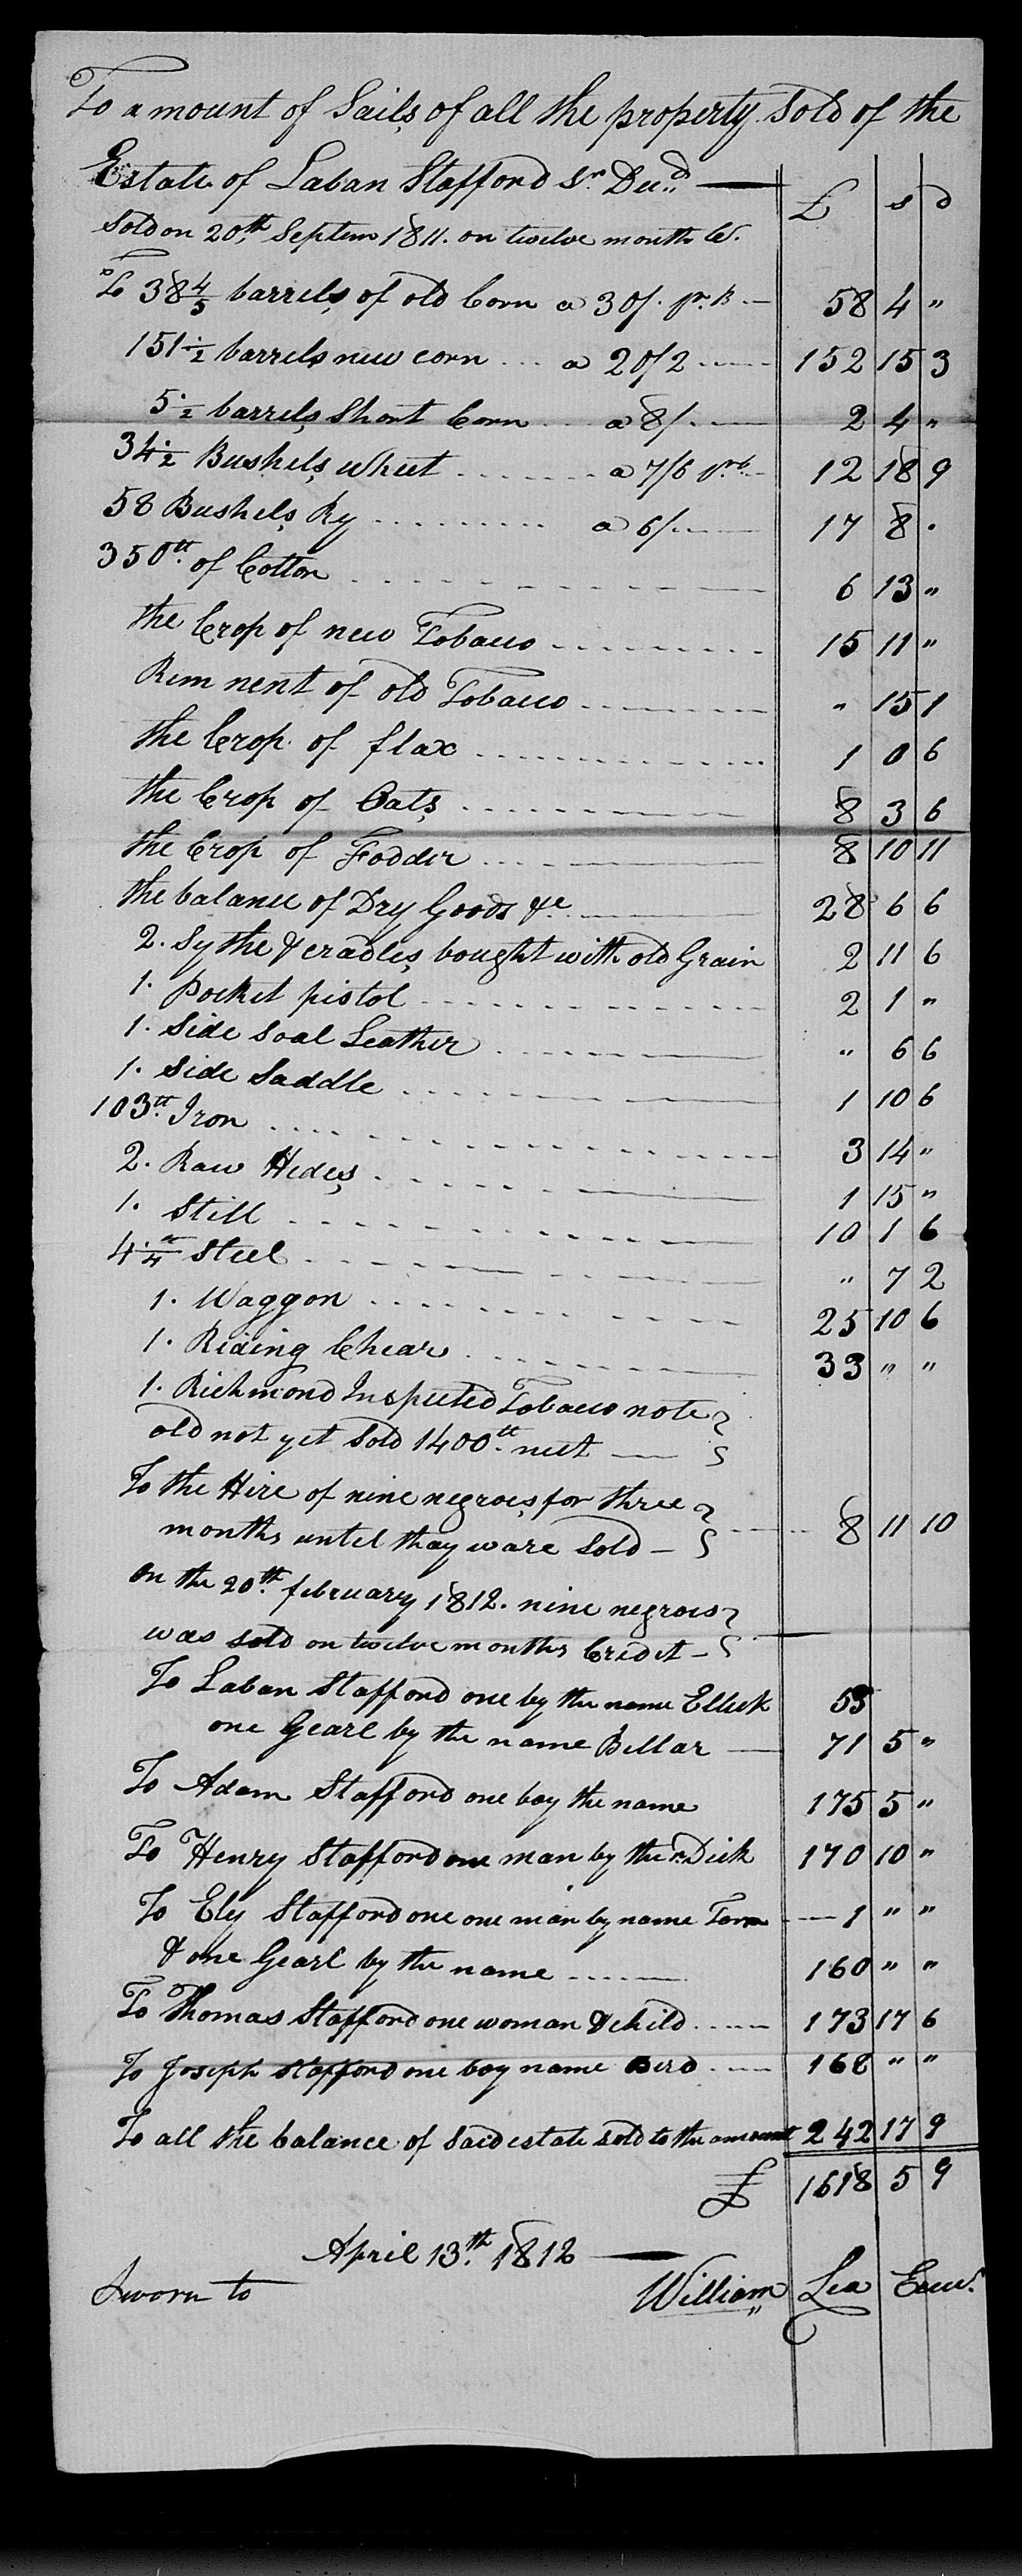 To a mount of Sails of all the property Sold of the
Estate of Laban Stafford Sr. Decd
£ s d
Sold on 20th Septem 1811. on twelve month Cr.
To 38 4/5 barrels of old Corn a 30/. pr. B — 58 4 "
151 1/2 barrels new corn ... a 20/2 ...... 152 15 3
5 1/2 barrels Short Corn ... a 8/. — 2 4 "
34 1/2 Bushels wheet ....... a 7/6 pr. b — 12 18 9
58 Bushels Ry .......... a 6/. — 17 8 .
350 tt. of Cotton ........ 6 13 "
the Crop of new Tobacco ......... 15 11 "
Rem nent of old Tobacco ........ " 15 1
the Crop of flax ............ 1 0 6
the Crop of Oats ........ 8 3 6
the Crop of Fodder ....... 8 10 11
the balance of Dry Goods &c ....... 28 6 6
2. Sythe & cradles bought with old Grain 2 11 6
1. Pocket pistol ........... 2 1 "
1. Side Soal Leather ....... " 6 6
1. Side Saddle ....... 1 10 6
103 tt. Iron ............ 3 14 "
2. Raw Hides ....... 1 15 "
1. Still ........ 10 1 6
4 1/4 tt Steel ........ " 7 2
1. Waggon .......... 25 10 6
1. Riding Chear ........ 33 " "
1. Richmond Inspected Tobacco note
old not yet Sold 1400 tt. neet —
To the Hire of nine negroes for three
months until thay ware Sold — 8 11 10
On the 20th february 1812. nine negroes
was sold on twelve months Credit —
To Laban Stafford one by the name Ellick 55
one Gearl by the name Bellar — 71 5 "
To Adam Stafford one boy the name 175 5 "
To Henry Stafford one man by the n. Dick 170 10 "
To Ely Stafford one one man by name Tom — 1 " "
& one Gearl by the name ...... 160 " "
To Thomas Stafford one woman & child ..... 173 17 6
To Joseph Stafford one boy name Bird .... 168 " "
To all the balance of Said estate sold to the amount 242 17 9
£ 1618 5 9
April 13th. 1812 —
Sworn to William Lea Execr.